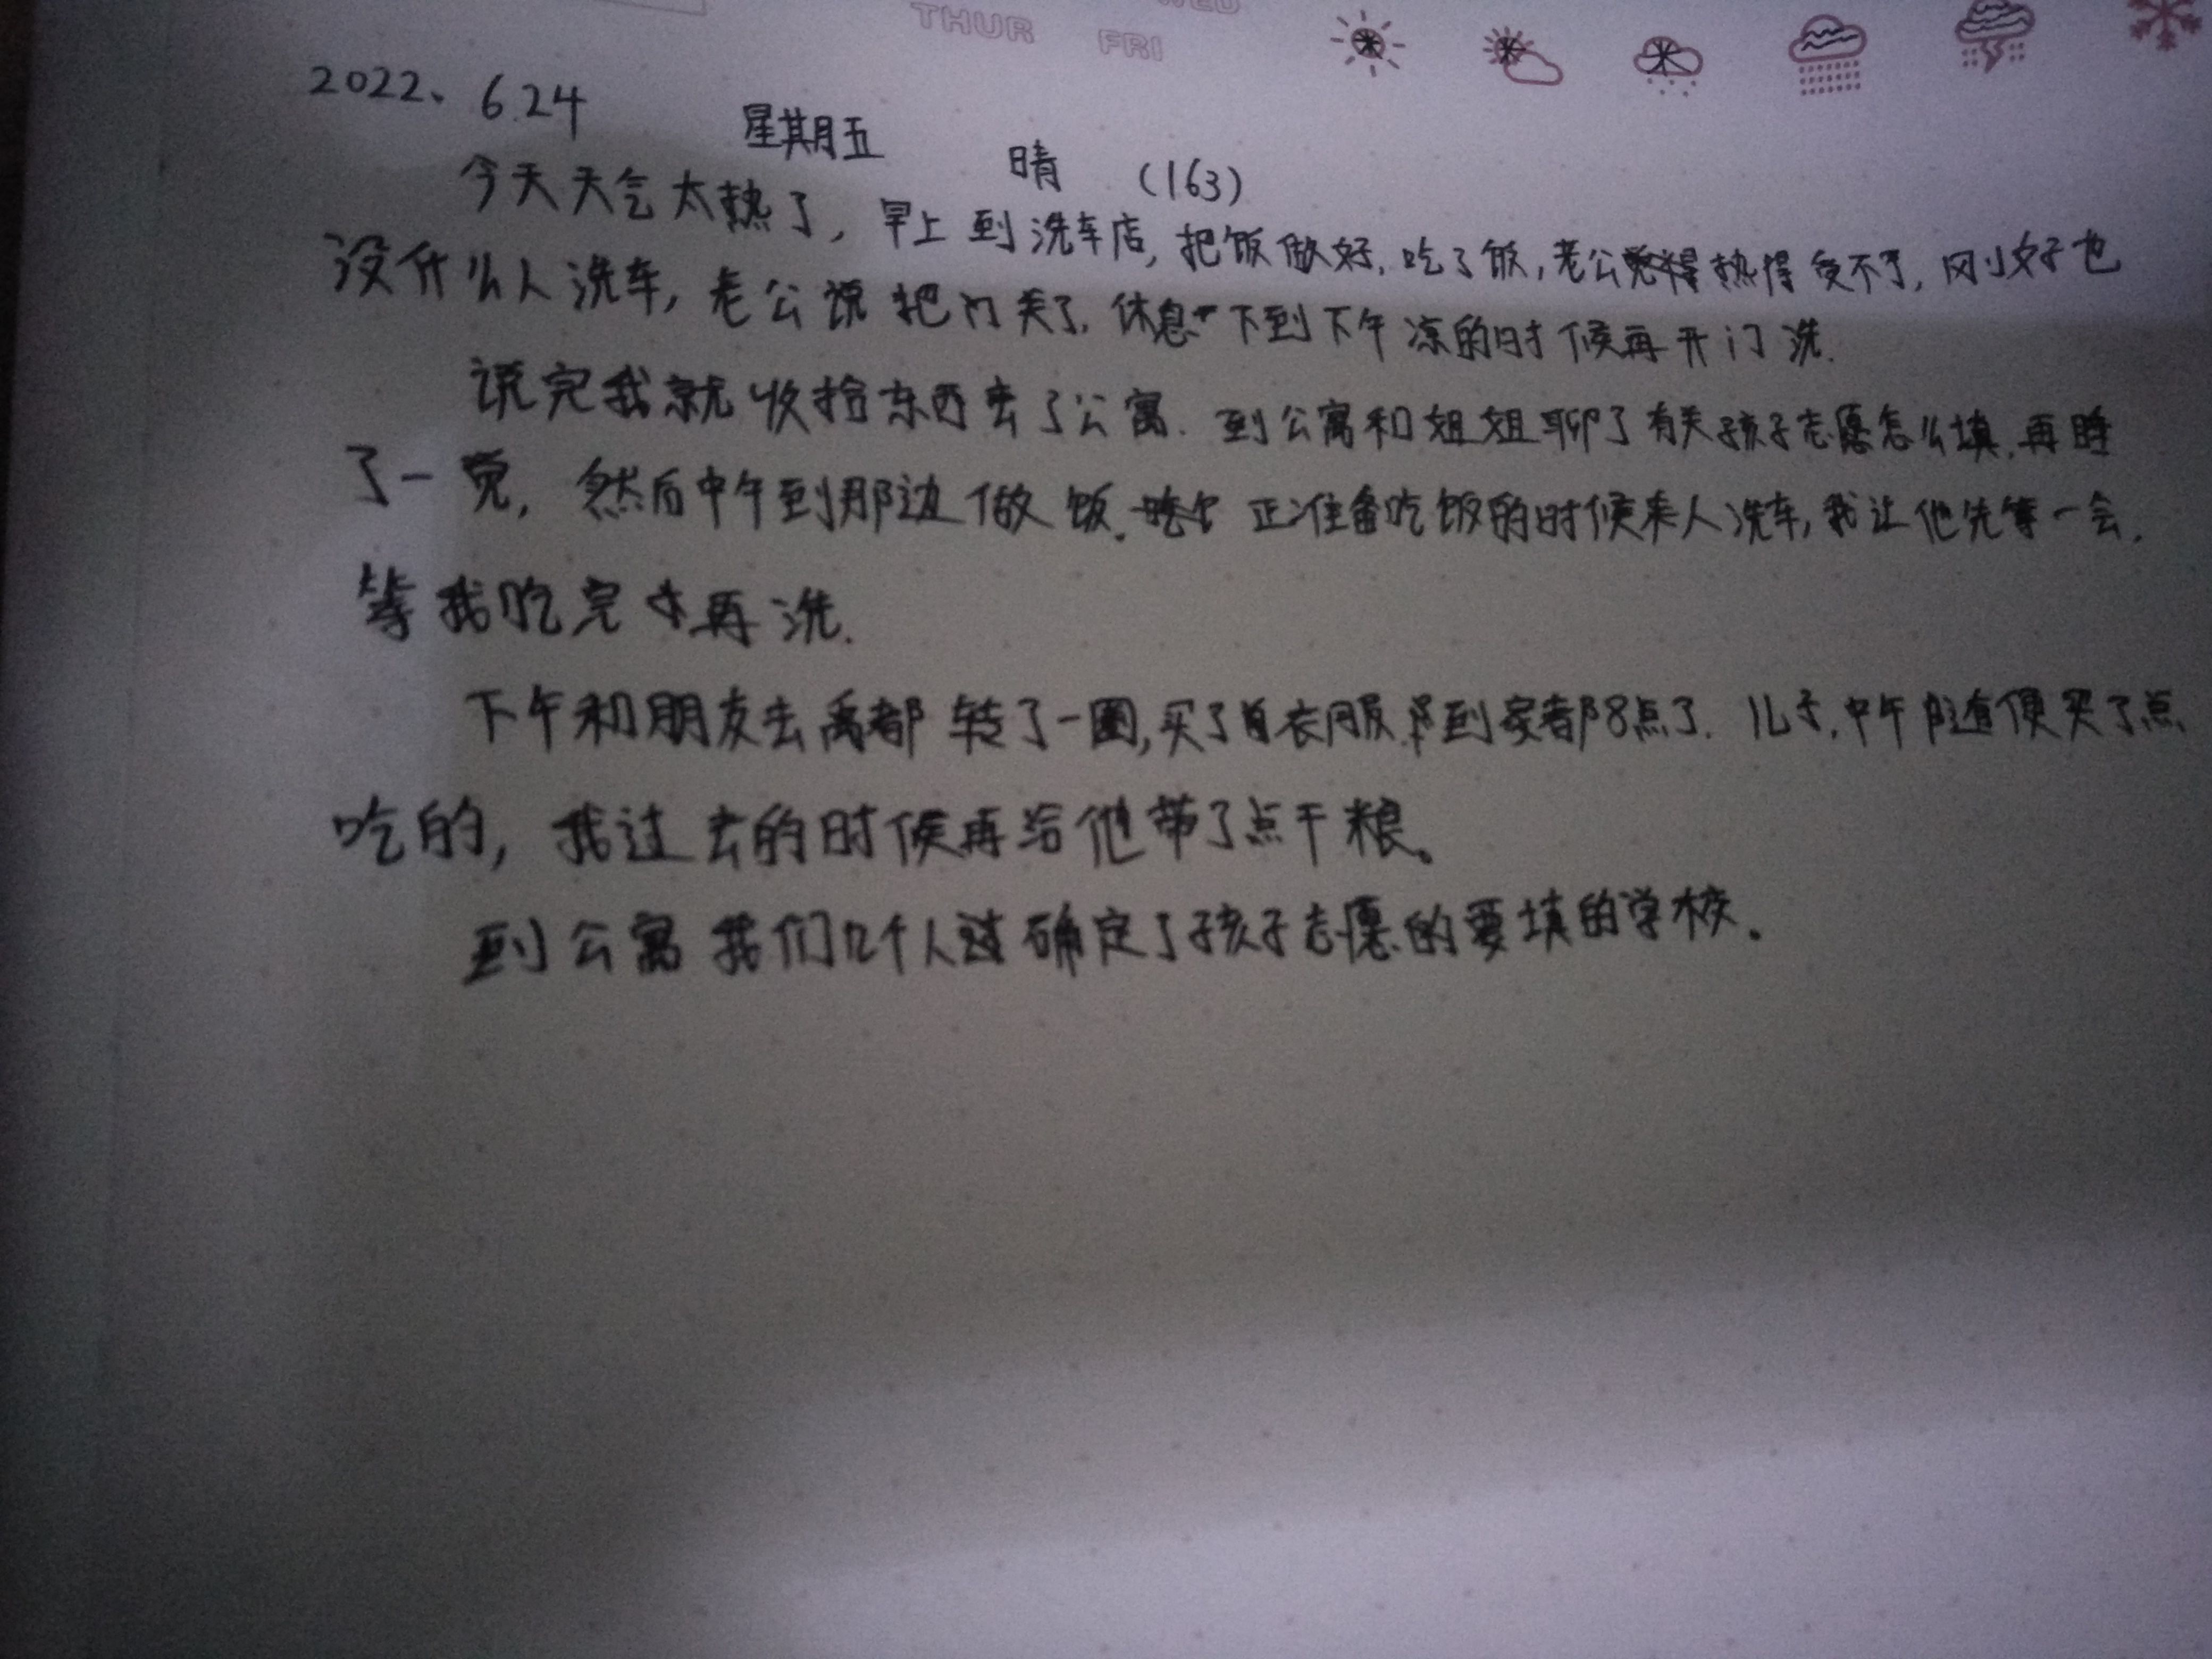 WED
THUR FRI
2022、6.24 星期五 晴 (163)
今天天气太热了，早上到洗车店，把饭做好，吃了饭，老公觉得热得受不了，刚好也
没什么人洗车，老公说把门关了，休息一下到下午凉的时候再开门洗.
说完我就收拾东西去了公寓. 到公寓和姐姐聊了有关孩子志愿怎么填，再睡
了一觉，然后中午到那边做饭. 正准备吃饭的时候来人洗车，我让他先等一会.
等我吃完再洗.
下午和朋友去禹都转了一圈，买了衣服，到家都8点了. 儿子，中午随便买了点
吃的，我过去的时候再给他带了点干粮。
到公寓我们几个人确定了孩子志愿的要填的学校。